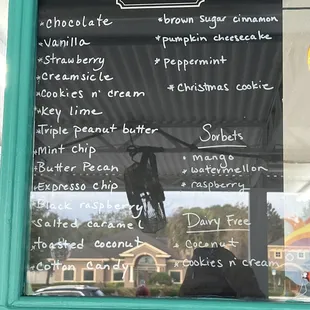 *chocolate
*Vanilla
*Strawberry
*creamsicle
*Cookies n' cream
*Key lime
*Triple peanut butter
*Mint chip
*Butter Pecan
*Expresso chip
*Black raspberry
*Salted caramel
*toasted coconut
*Cotton candy
*brown sugar cinnamon
*pumpkin cheesecake
*Peppermint
*Christmas cookie
Sorbets
*mango
*watermellon
*raspberry
Dairy Free
*Coconut
*Cookies n' cream